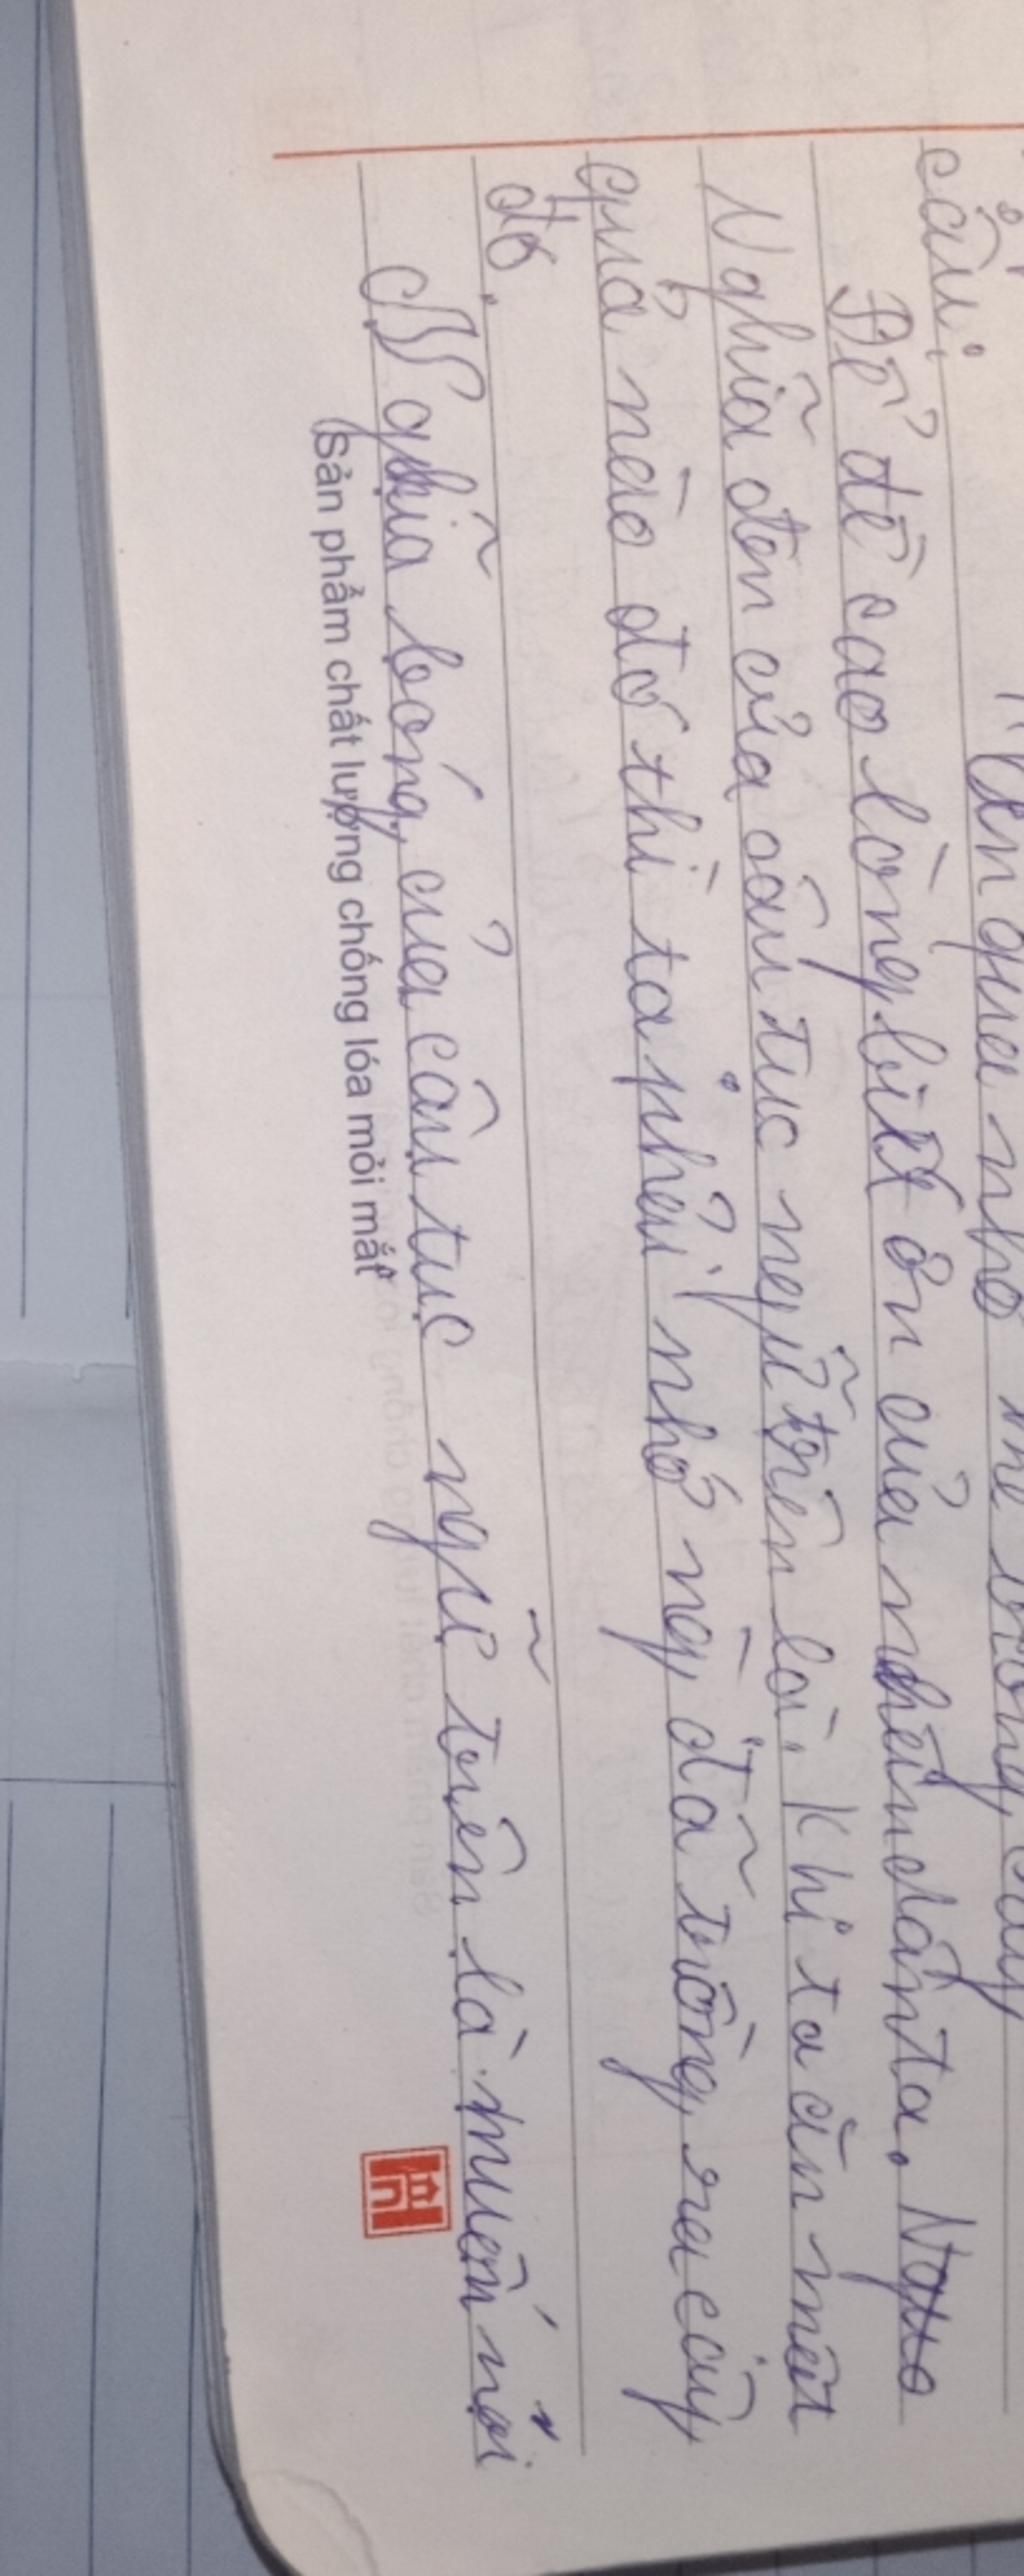 ăn quả nhớ kẻ trồng cây
cải.
Để đề cao lòng biết ơn của nhân dân ta.
Nghĩa đen của câu tục ngữ trên là. Khi ta ăn một
quả nào đó thì ta phải nhớ ng đã trồng ra cây
đó.
Nghĩa bóng của câu tục ngữ trên là muốn nói
(Sản phẩm chất lượng chống lóa mỏi mắt)